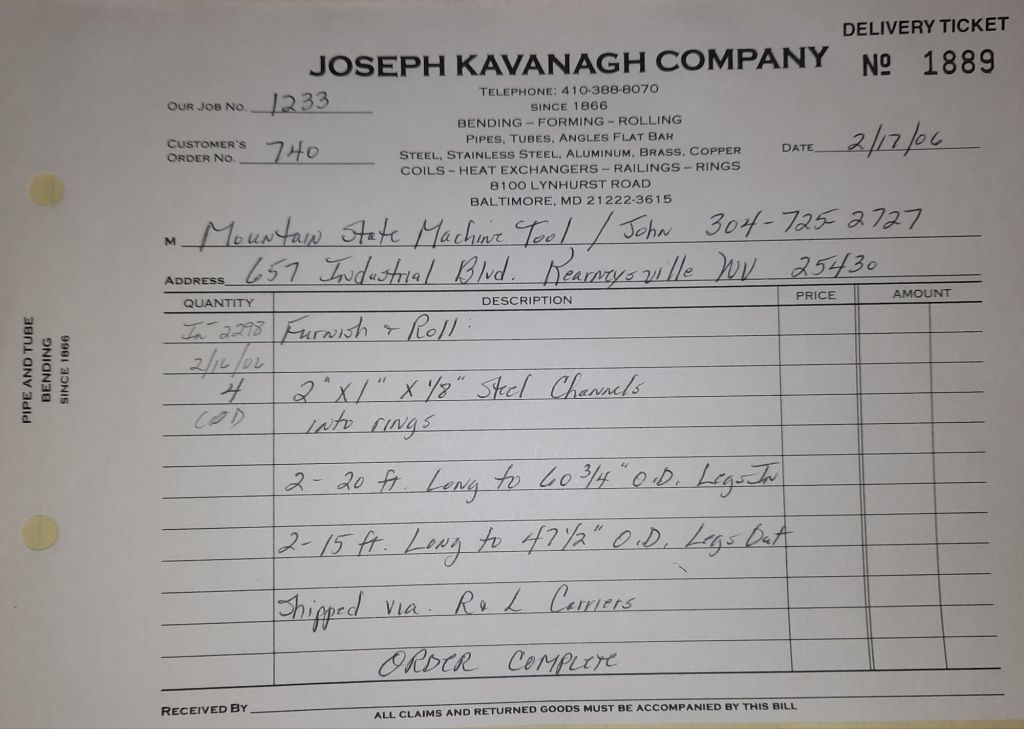 DELIVERY TICKET
JOSEPH KAVANAGH COMPANY
Nº 1889
TELEPHONE: 410-388-8070
SINCE 1866
BENDING – FORMING – ROLLING
PIPES, TUBES, ANGLES FLAT BAR
STEEL, STAINLESS STEEL, ALUMINUM, BRASS, COPPER
COILS – HEAT EXCHANGERS – RAILINGS – RINGS
8100 LYNHURST ROAD
BALTIMORE, MD 21222-3615
OUR JOB NO. 1233
CUSTOMER'S
ORDER NO. 740
DATE 2/17/06
M Mountain State Machine Tool / John 304-725-2727
ADDRESS 657 Industrial Blvd. Kearneysville WV 25430
QUANTITY DESCRIPTION PRICE AMOUNT
In 2298 Furnish & Roll:
2/16/06
4 2" X 1" X 1/8" Steel Channels
COD into rings
2 - 20 ft. Long to 60 3/4" O.D. Legs In
2 - 15 ft. Long to 47 1/2" O.D. Legs Out
Shipped via. R & L Carriers
ORDER COMPLETE
RECEIVED BY
ALL CLAIMS AND RETURNED GOODS MUST BE ACCOMPANIED BY THIS BILL
PIPE AND TUBE
BENDING
SINCE 1866